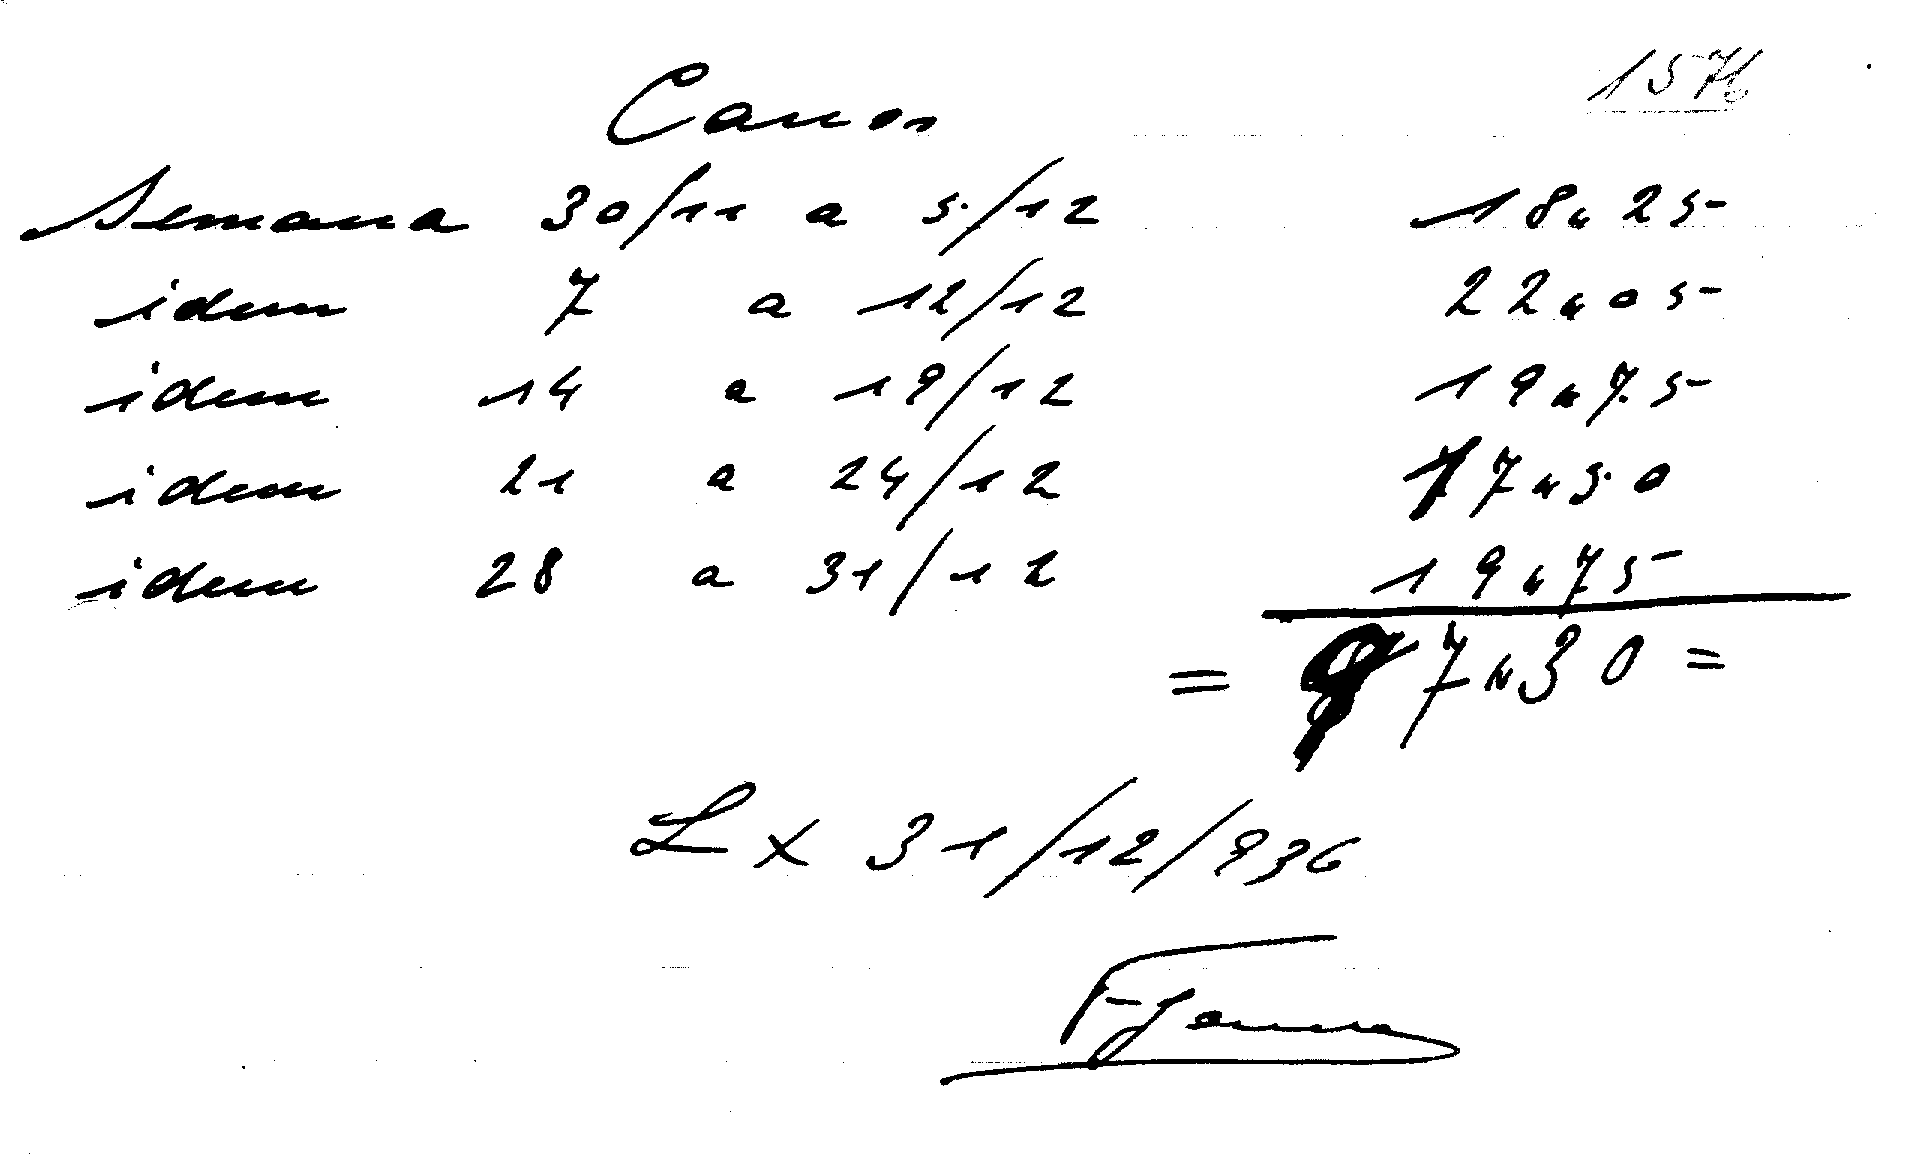 1576
Carros
Semana 30/11 a 5/12 18"25
idem 7 a 12/12 22"05
idem 14 a 19/12 19"75
idem 21 a 24/12 17"50
idem 28 a 31/12 19"75
= 97"30 =
Lx 31/12/936